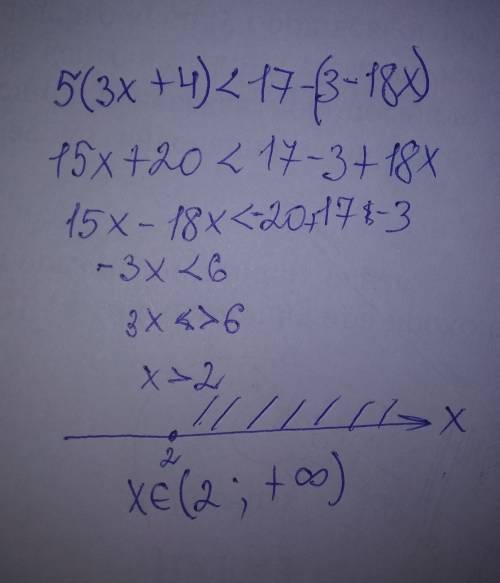 5(3x+4)<17-(3-18x)
15x+20<17-3+18x
15x-18x<-20+17-3
-3x<6
3x>6
x>2
x
2
x∈(2;+∞)